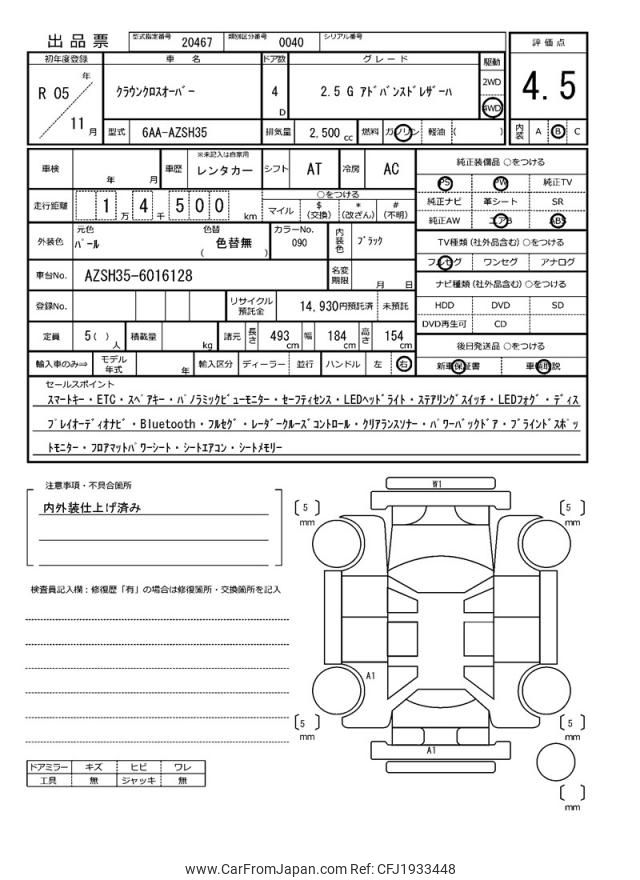 出品票 型式指定番号 20467 類別区分番号 0040 シリアル番号
初年度登録 車名 ドア数 グレード 駆動 評価点
R 05 年 11 月 クラウンクロスオーバー 4 D 2.5 G アドバンスドレザーハ 2WD 4WD 4.5
型式 6AA-AZSH35 排気量 2,500 cc 燃料 ガソリン 軽油 ( ) 内装 A B C
車検 年 月 車歴 ※未記入は自家用 レンタカー シフト AT 冷房 AC
純正装備品 ○をつける
PS PW 純正TV
純正ナビ 革シート SR
純正AW エアB ABS
走行距離 1 万 4 千 5 0 0 km ○をつける
マイル $ (交換) * (改ざん) # (不明)
外装色 元色 パール 色替 色替無 ( ) カラーNo. 090 内装色 ブラック
TV種類 (社外品含む) ○をつける
フルセグ ワンセグ アナログ
車台No. AZSH35-6016128 名変期限 月 日
ナビ種類 (社外品含む) ○をつける
HDD DVD SD
DVD再生可 CD
登録No. リサイクル預託金 14,930円預託済 未預託
定員 5( ) 人 積載量 kg 諸元 長さ 493 cm 幅 184 cm 高さ 154 cm
後日発送品 ○をつける
新車保証書 車輌取説
輸入車のみ⇨ モデル年式 年 輸入区分 ディーラー 並行 ハンドル 左 右
セールスポイント
スマートキー・ETC・スペアキー・パノラミックビューモニター・セーフティセンス・LEDヘッドライト・ステアリングスイッチ・LEDフォグ・ディス
プレイオーディオナビ・Bluetooth・フルセグ・レーダークルーズコントロール・クリアランスソナー・パワーバックドア・ブラインドスポッ
トモニター・フロアマットパワーシート・シートエアコン・シートメモリー
注意事項・不具合箇所
内外装仕上げ済み
検査員記入欄：修復歴「有」の場合は修復箇所・交換箇所を記入
W1
5 mm
5 mm
A1
5 mm
5 mm
A1
mm
ドアミラー キズ ヒビ ワレ
工具 無 ジャッキ 無
www.CarFromJapan.com Ref: CFJ1933448